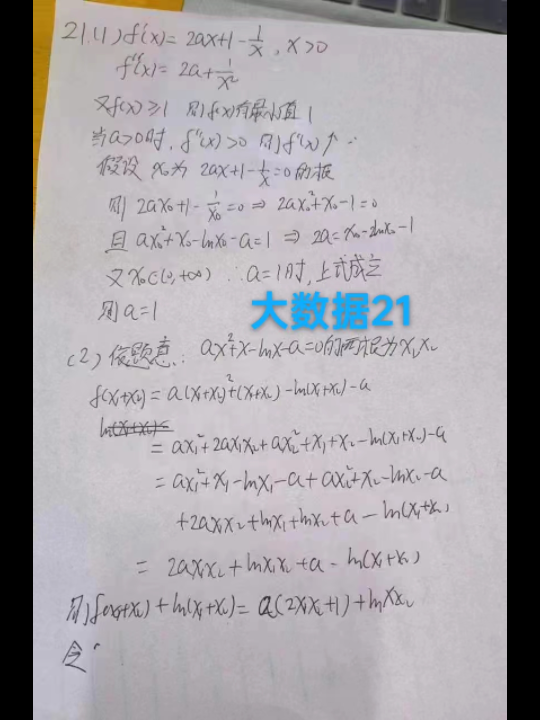 21.(1) f'(x)= 2ax+1-1/x , x>0
f''(x)= 2a+1/x²
又f(x)≥1 则f(x)有最小值1
当a>0时, f''(x)>0 则f'(x)↑
假设 x₀为 2ax+1-1/x=0的根
则 2ax₀+1-1/x₀=0 ⇒ 2ax₀²+x₀-1=0
且 ax₀²+x₀-lnx₀-a=1 ⇒ 2a=x₀-2lnx₀-1
又x₀∈(0,+∞) ∴a=1时,上式成立
则a=1
大数据21
(2) 依题意: ax²+x-lnx-a=0的两根为x₁x₂
f(x₁+x₂)= a(x₁+x₂)²+(x₁+x₂)-ln(x₁+x₂)-a
ln(x₁+x₂)<
= ax₁²+2ax₁x₂+ax₂²+x₁+x₂-ln(x₁+x₂)-a
= ax₁²+x₁-lnx₁-a+ax₂²+x₂-lnx₂-a
+2ax₁x₂+lnx₁+lnx₂+a-ln(x₁+x₂)
= 2ax₁x₂+lnx₁x₂+a-ln(x₁+x₂)
则f(x₁+x₂)+ln(x₁+x₂)= a(2x₁x₂+1)+lnx₁x₂
令